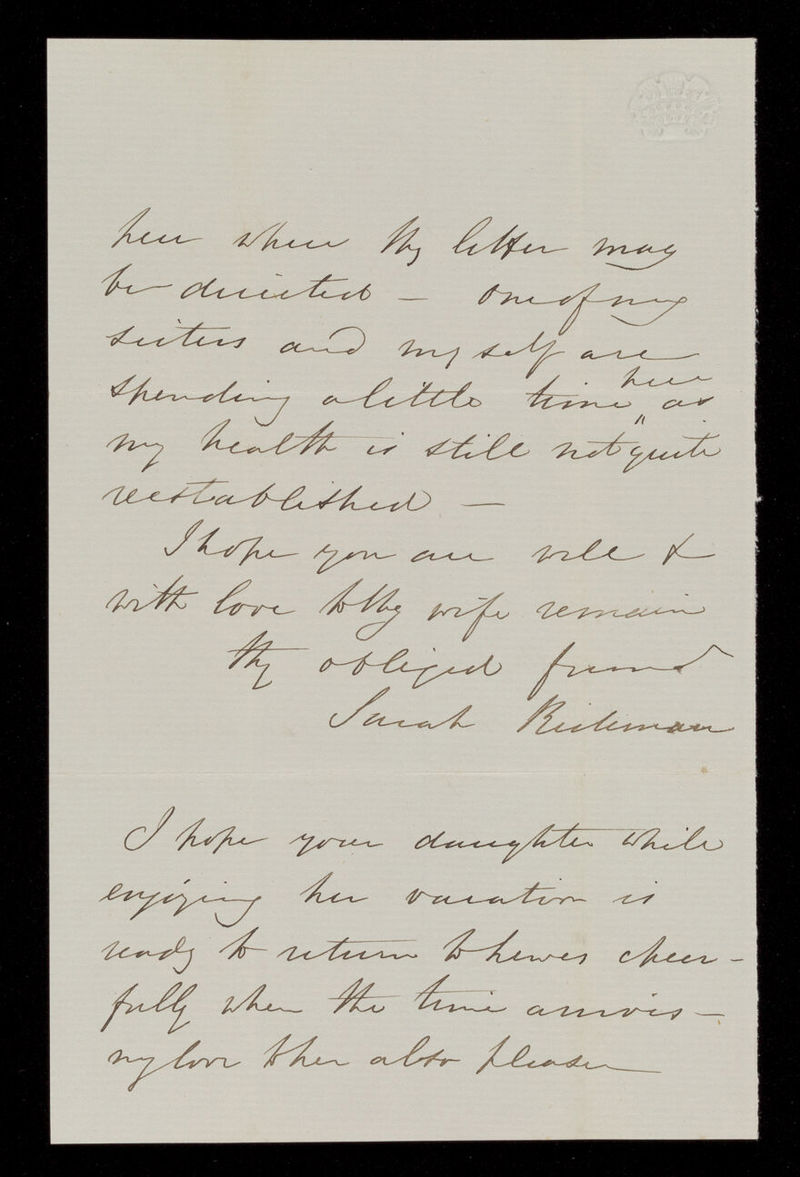 here where thy letter may
be directed — One of my
sisters and myself are
here
spending a little time " as
my health is still not quite
reestablished —
I hope you are well &
with love to thy wife remain
thy obliged friend
Sarah Rickman
I hope your daughter while
enjoying her vacation is
ready to return to Lewes cheer-
fully when the time arrives —
my love to her also please